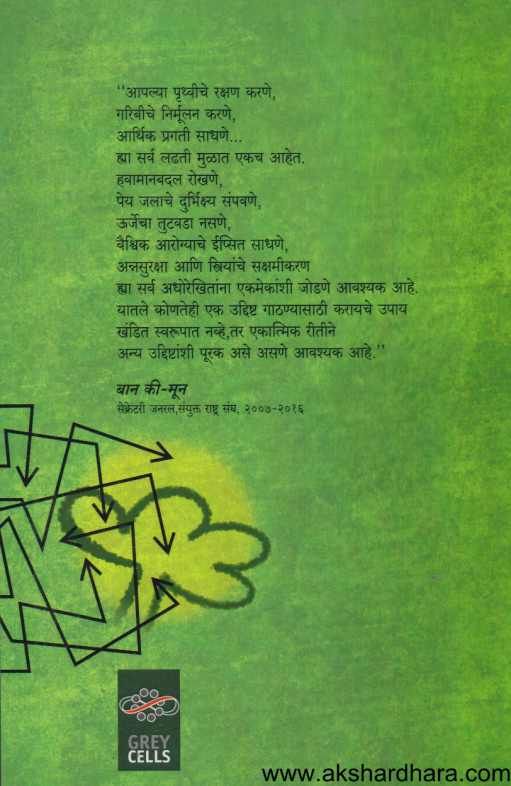 "आपल्या पृथ्वीचे रक्षण करणे,
गरिबीचे निर्मूलन करणे,
आर्थिक प्रगती साधणे...
ह्या सर्व लढती मुळात एकच आहेत.
हवामानबदल रोखणे,
पेय जलाचे दुर्भिक्ष्य संपवणे,
ऊर्जेचा तुटवडा नसणे,
वैश्विक आरोग्याचे ईप्सित साधणे,
अन्नसुरक्षा आणि स्त्रियांचे सक्षमीकरण
ह्या सर्व अधोरेखितांना एकमेकांशी जोडणे आवश्यक आहे.
यातले कोणतेही एक उद्दिष्ट गाठण्यासाठी करायचे उपाय
खंडित स्वरूपात नव्हे,तर एकात्मिक रीतीने
अन्य उद्दिष्टांशी पूरक असे असणे आवश्यक आहे."
बान की-मून
सेक्रेटरी जनरल,संयुक्त राष्ट्र संघ, २००७-२०१६
GREY
CELLS
www.akshardhara.com